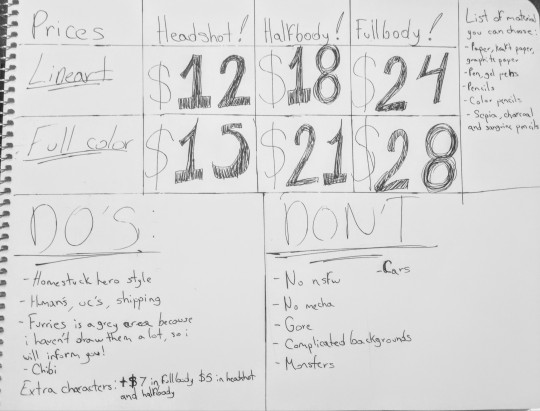 Prices
Headshot!
Halfbody!
Fullbody!
Lineart
$12
$18
$24
Full color
$15
$21
$28
List of material
you can choose:
- Paper, kraft paper,
graphite paper
- Pen, gel pens
- Pencils
- Color pencils
- Sepia, charcoal
and sanguine pencils
DO'S:
- Homestuck hero style
- Humans, oc's, shipping
- Furries is a grey area because
i haven't draw them a lot, so i
will inform you!
- Chibi
Extra characters: +$7 in fullbody $5 in headshot
and halfbody
DON'T
- No nsfw
- Cars
- No mecha
- Gore
- Complicated backgrounds
- Monsters